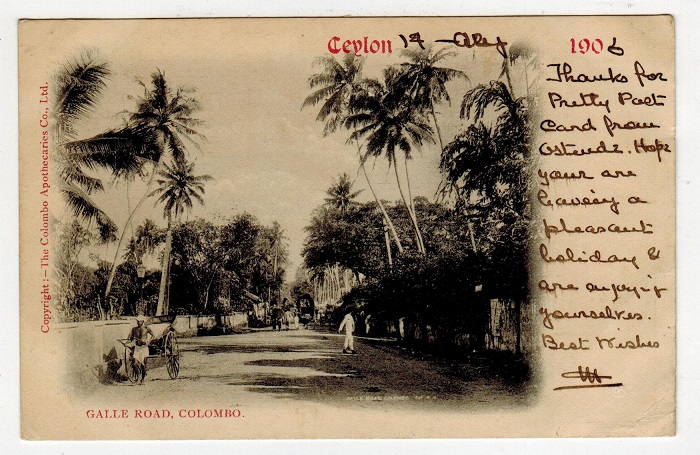 Ceylon 14 - 1906
Thanks for
Pretty Post
Card from
Ostende. Hope
your are
having a
pleasant
holiday &
are enjoying
yourselves.
Best Wishes
Copyright:—The Colombo Apothecaries Co., Ltd.
GALLE ROAD, COLOMBO.